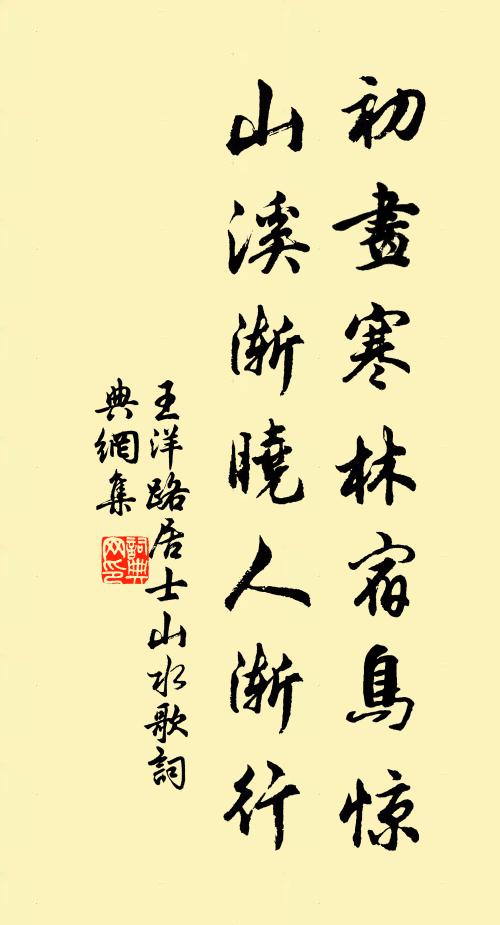 初畫寒林宿鳥惊
山溪漸曉人漸行
王洋路居士山水歌詞
典網集
詞典
网印